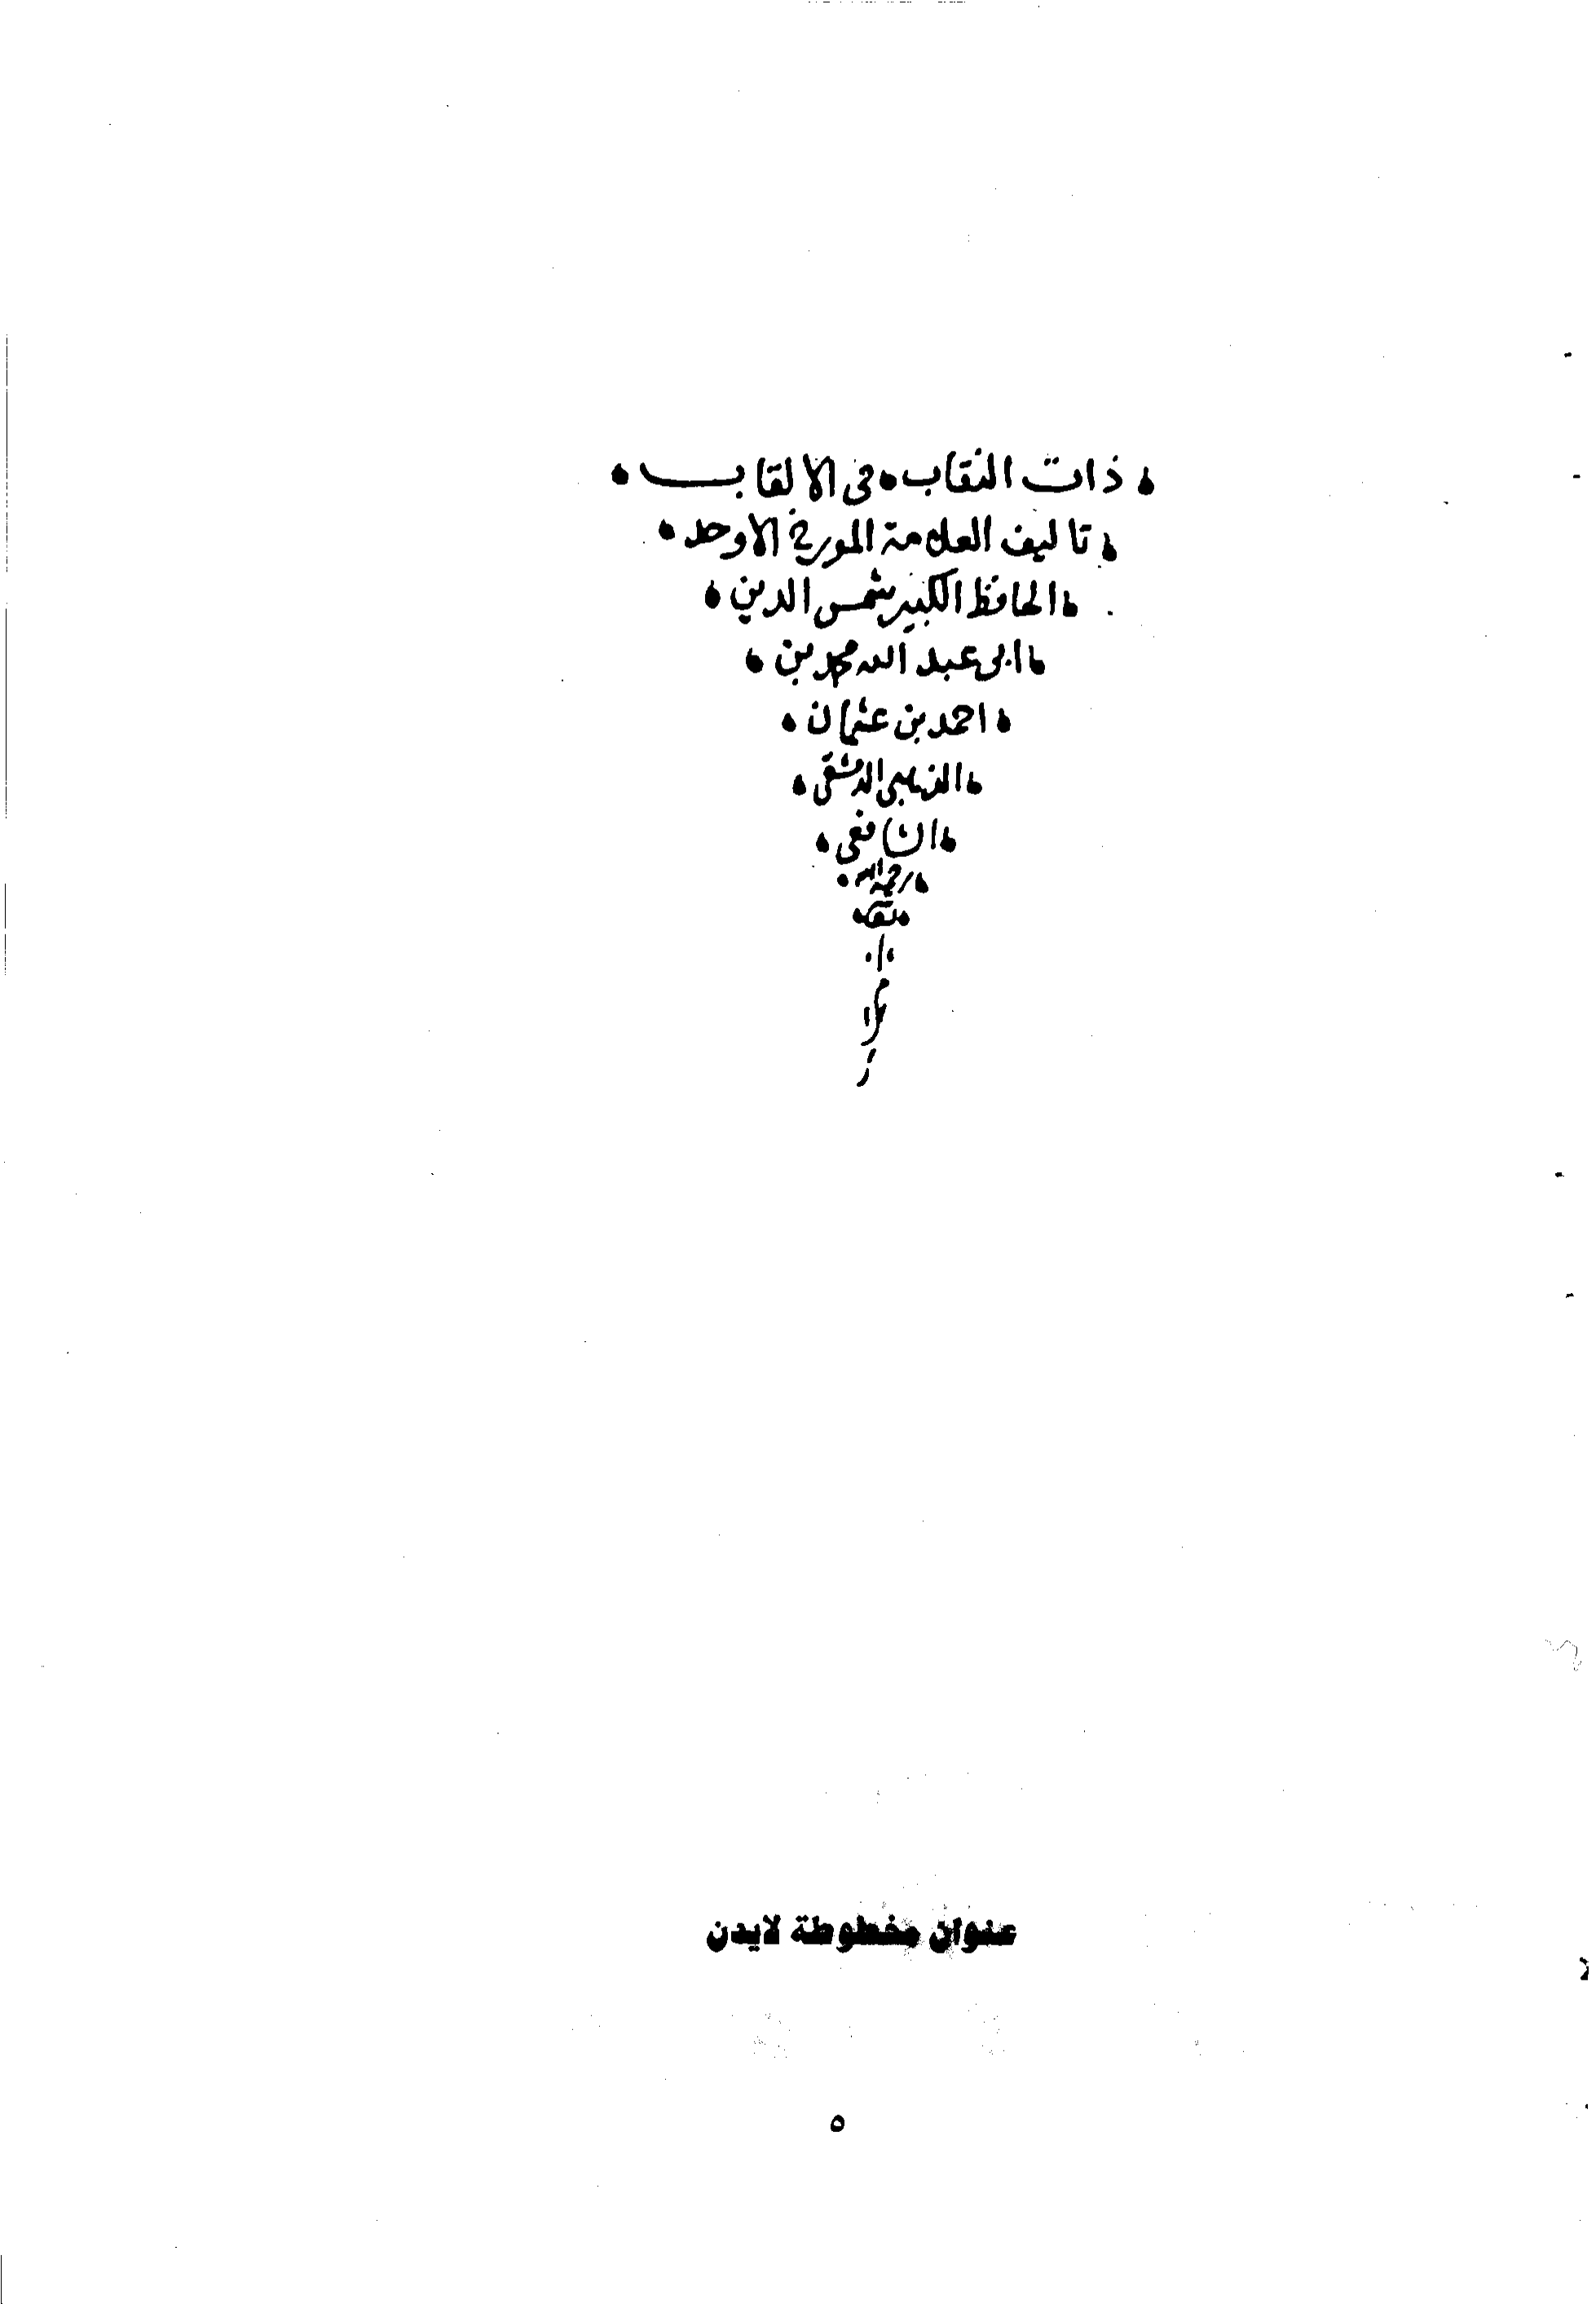 ذات النقاب في الالقاب
تاليف العلامة المورخ الاوحد
الحافظ الكبير شمس الدين
ابى عبد الله محمد بن
احمد بن عثمان
الذهبى الدمشقى
الشافعى
رحمه الله
عنوان مخطوطة لايدن
٥